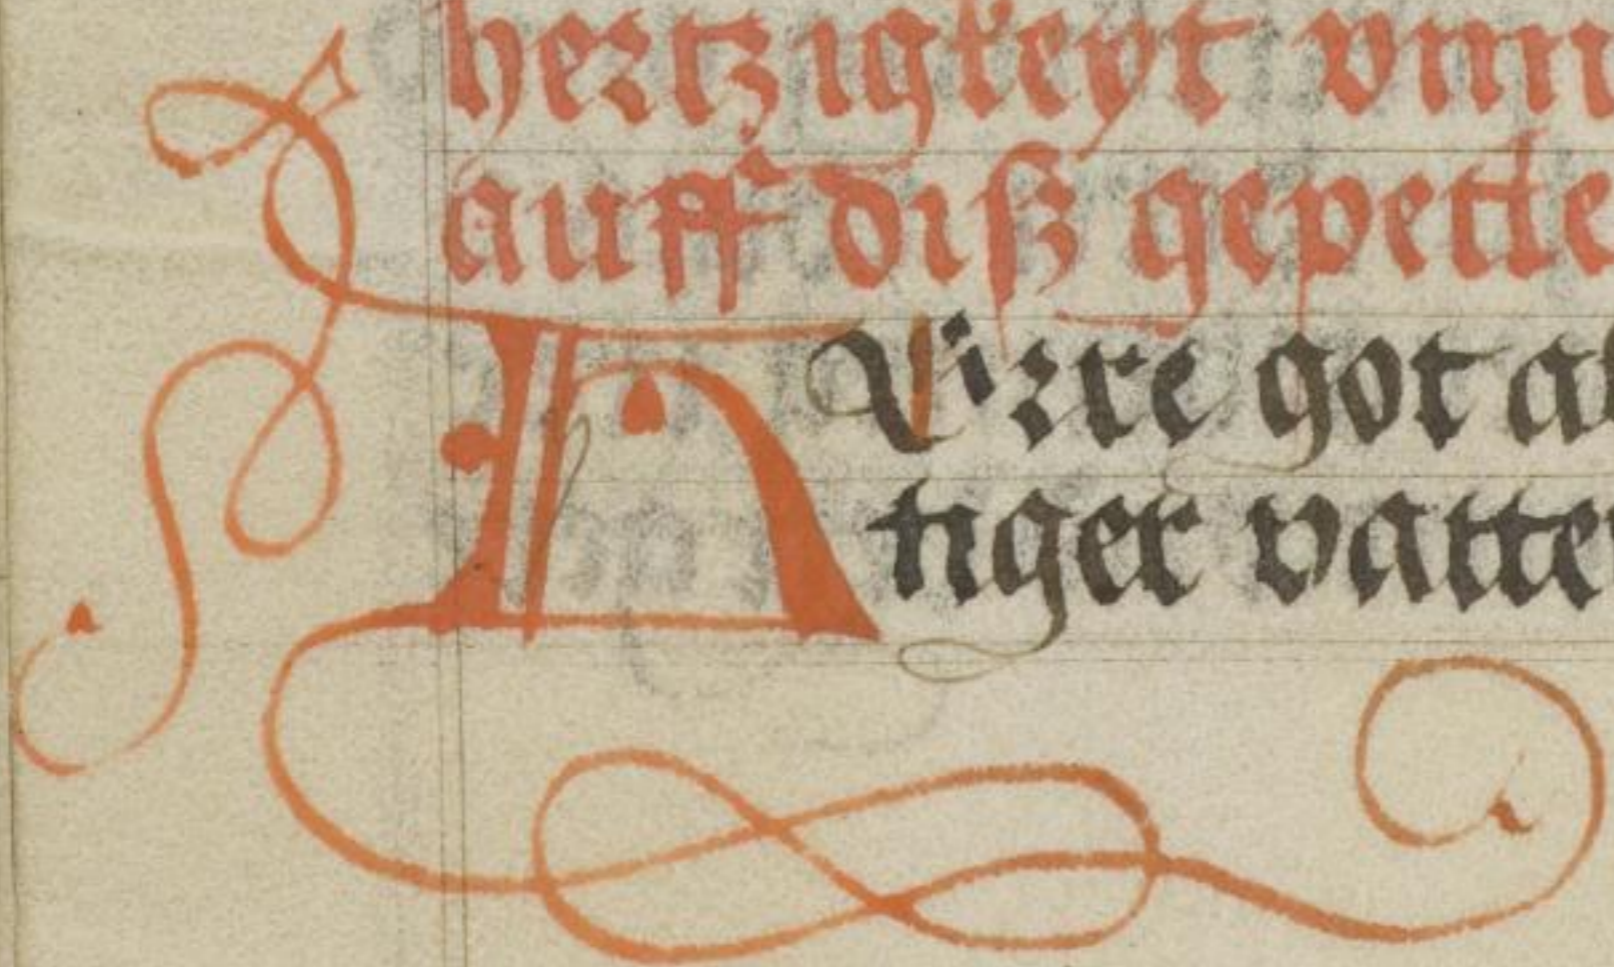 hertzigkeyt vnn
auff diß gepette
HErre got al
tiger vatter